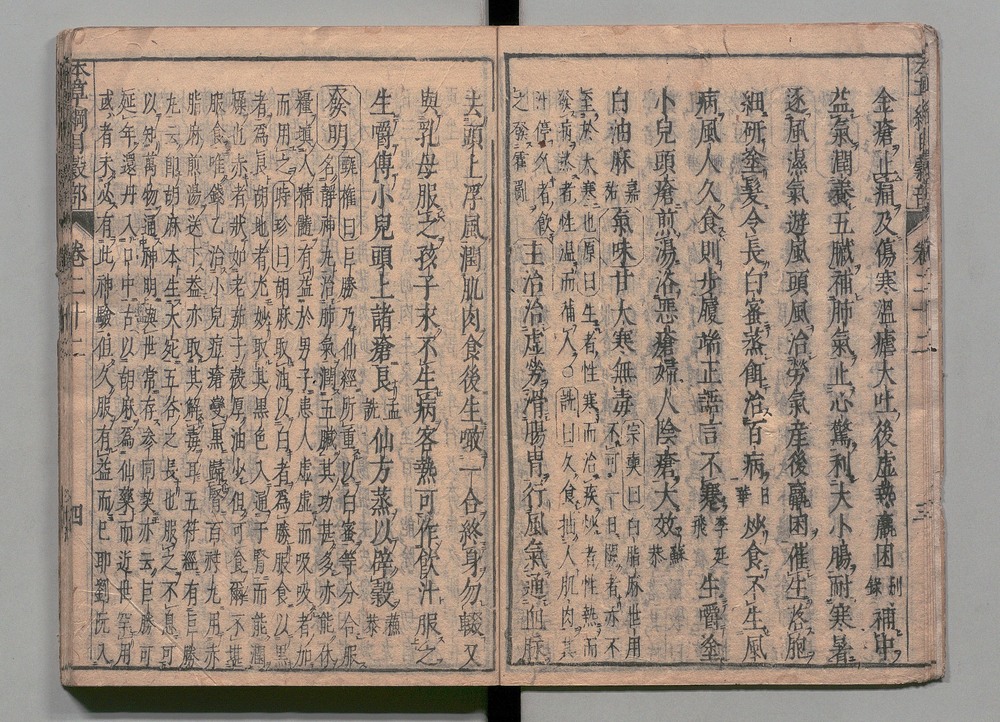 金瘡止痛及傷寒溫瘧大吐後虛熱羸困別錄補中
益氣潤養五臟補肺氣止心驚利大小腸耐寒暑
逐風濕氣遊風頭風治勞氣産後羸困催生落胞
細研塗髮令長白蜜蒸餌治百病日華炒食不生風
病風人久食則步履端正語言不蹇李廷飛生嚼塗
小兒頭瘡煎湯浴惡瘡婦人陰瘡大效蘇恭
白油麻嘉祐氣味甘大寒無毒宗奭曰白脂麻世用不可一日闕者亦不
至於大寒也原曰生者性寒而治疾炒者性熱而
發病蒸者性溫而補人○詵曰久食抽人肌肉其
汁停久者飲
之發霍亂主治治虛勞滑腸胃行風氣通血脉
去頭上浮風潤肌肉食後生噉一合終身勿輟又
與乳母服之孩子永不生病客熱可作飲汁服之
生嚼傅小兒頭上諸瘡良孟詵仙方蒸以辟穀蘇恭
發明甄權曰巨勝乃仙經所重以白蜜等分合服
名靜神丸治肺氣潤五臟其功甚多亦能休
糧塡人精髓有益於男子患人虛虛而吸吸者加
而用之時珍曰胡麻取油以白者爲勝服食以黑
者爲良胡地者尤妙取其黑色入通于腎而能潤
燥也赤者狀如老茄子殼厚油少但可食爾不堪
服食唯錢乙治小兒痘瘡變黑歸腎百祥丸用赤
脂麻煎湯送下蓋亦取其解毒耳五符經有巨勝
丸云卽胡麻本生大宛五谷之長也服之不息可
以知萬物通神明與世常存參同契亦云巨勝可
延年還丹入口中古以胡麻爲仙藥而近世罕用
或者未必有此神驗但久服有益而已耶劉阮入
本草綱目穀部 卷二十二 三
本草綱目穀部 卷二十二 四